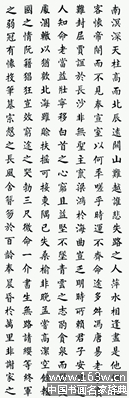 南溟深天柱高而北辰遠關山難越誰悲失路之人萍水相逢盡是他
客懷帝閽而不見奉宣室以何年嗟乎時運不齊命途多舛馮唐易老
難封屈賈誼於長沙非無聖主竄梁鴻於海曲豈乏明時所賴君子安
人知命老當益壯寧移白首之心窮且益堅不墜青雲之志酌貪泉而
處涸轍以猶歡北海雖賒扶搖可接東隅已失桑榆非晚孟嘗高潔空
國之情阮籍猖狂豈效窮途之哭勃三尺微命一介書生無路請纓等終軍
之弱冠有懷投筆慕宗慤之長風舍簪笏於百齡奉晨昏於萬里非謝家之
www.163w.cn
中国书法名家辞典